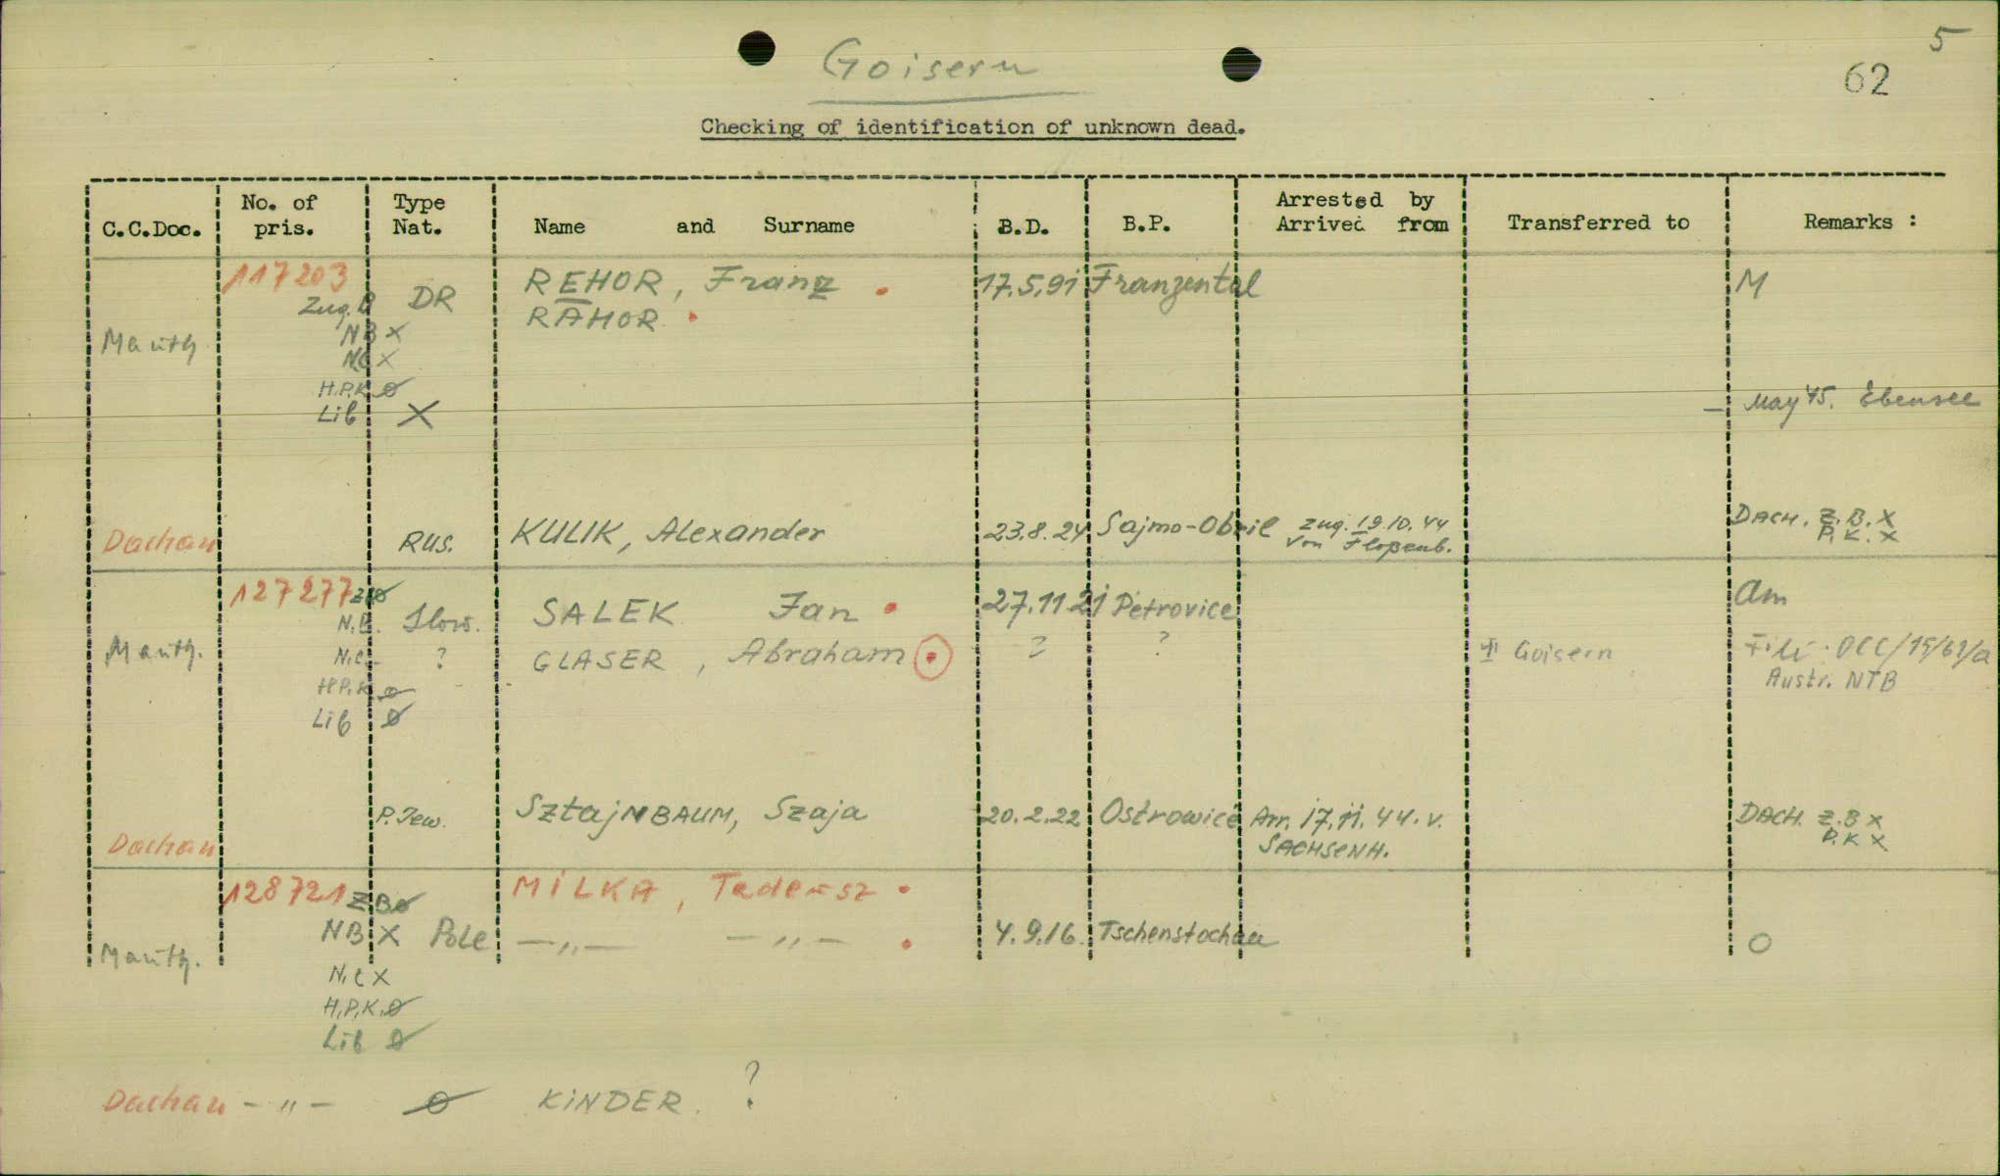 5
Goisern
62
Checking of identification of unknown dead.
C.C.Doc. No. of pris. Type Nat. Name and Surname B.D. B.P. Arrested by Arrived from Transferred to Remarks :
117203
Zug.B DR REHOR, Franz 17.5.91 Franzental M
RAHOR
Mauth. NB X
N.C X
H.P.K. Ø
Lib X – May 45. Ebensee
Dachau RUS. KULIK, Alexander 23.8.24 Sajmo-Obril zug. 19.10.44 von Floßenb. DACH. Z.B. X
P.K. X
127277 ZBØ Slow. SALEK Jan 27.11.21 Petrovice am
N.B.
Mauth. N.C. ? GLASER, Abraham ? ? Goisern File OCC/15/61/a
Austr. NTB
H.P.K. Ø
Lib Ø
P.Jew. SztajNBAUM, Szaja 20.2.22 Ostrowice Arr. 17.11.44. v. SACHSENH. DACH. Z.B X
P.K X
Dachau
128721 ZBØ MILKA, Tadeusz
Mauth. NB X Pole –„– –„– 4.9.16. Tschenstochau O
N.C X
H.P.K. Ø
Lib Ø
Dachau –„– Ø KINDER. ?